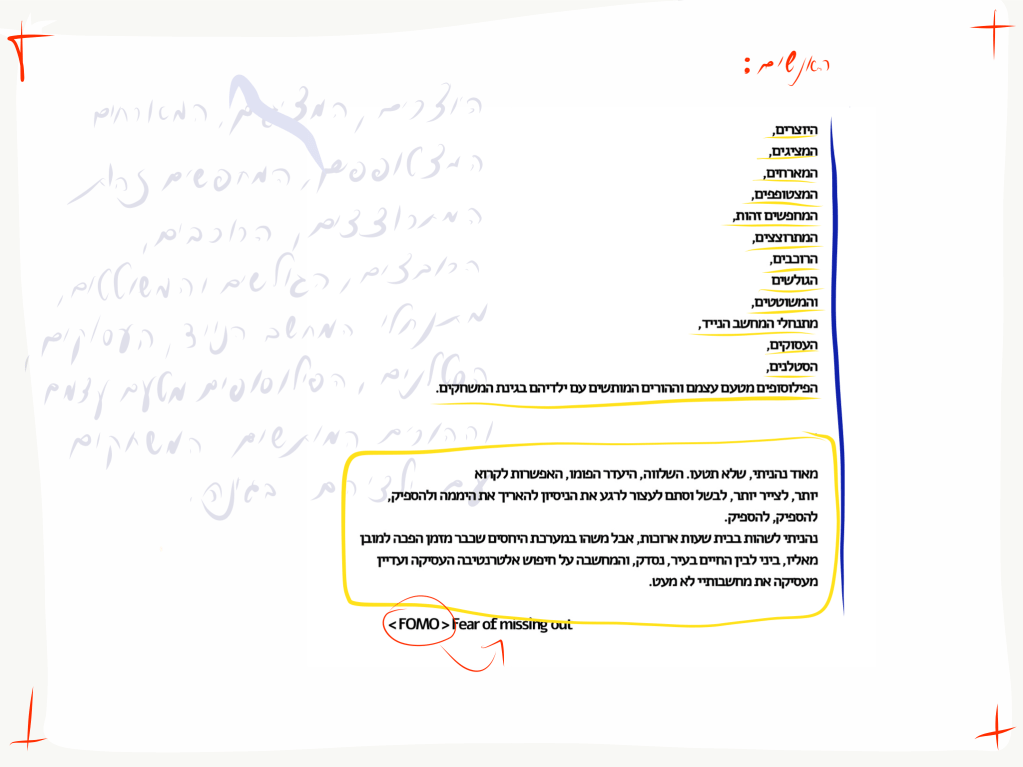 האנשים:
היוצרים,
המציגים,
המארחים,
המצטופפים,
המחפשים זהות,
המתרוצצים,
הרוכבים,
הגולשים
והמשוטטים,
מתנחלי המחשב הנייד,
העסוקים,
הסטלנים,
הפילוסופים מטעם עצמם וההורים המותשים עם ילדיהם בגינת המשחקים.
מאוד נהניתי, שלא תטעו. השלווה, היעדר הפומו, האפשרות לקרוא
יותר, לצייר יותר, לבשל וסתם לעצור לרגע את הניסיון להאריך את היממה ולהספיק,
להספיק, להספיק.
נהניתי לשהות בבית שעות ארוכות, אבל משהו במערכת היחסים שכבר מזמן הפכה למובן
מאליו, ביני לבין החיים בעיר, נסדק, והמחשבה על חיפוש אלטרנטיבה העסיקה ועדיין
מעסיקה את מחשבותיי לא מעט.
< FOMO > Fear of missing out
היוצרים, המציגים, המארחים
המצטופפים, המחפשים זהות
המתרוצצים, הרוכבים,
הגולשים והמשוטטים,
מתנחלי המחשב הנייד, העסוקים
הסטלנים, הפילוסופים מטעם עצמם
וההורים המותשים המשחקים
עם ילדיהם בגינה.